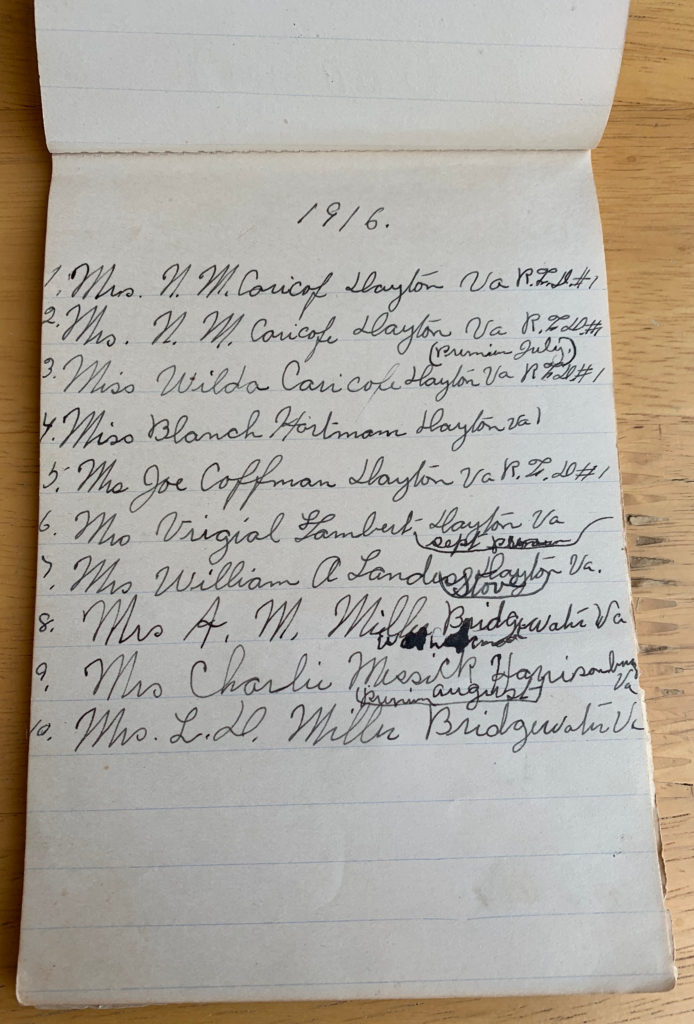 1916.
1. Mrs. N. M. Caricof Dayton Va R.F.D.#1
2. Mrs. N. M. Caricofe Dayton Va R.F.D.#1
(Premium July.)
3. Miss Wilda Caricofe Dayton Va R F D#1
4. Miss Blanch Hartmam Dayton Va 1
5. Mrs Joe Coffman Dayton Va R.F.D#1
6. Mrs Vrigial Lambert Dayton Va
sept
7. Mrs William A Landes Dayton Va.
Stove
8. Mrs A. M. Miller Bridgewater Va
9. Mrs Charlie Messick Harrisonburg Va
(Premium august)
10. Mrs. L.D. Miller Bridgewater Va